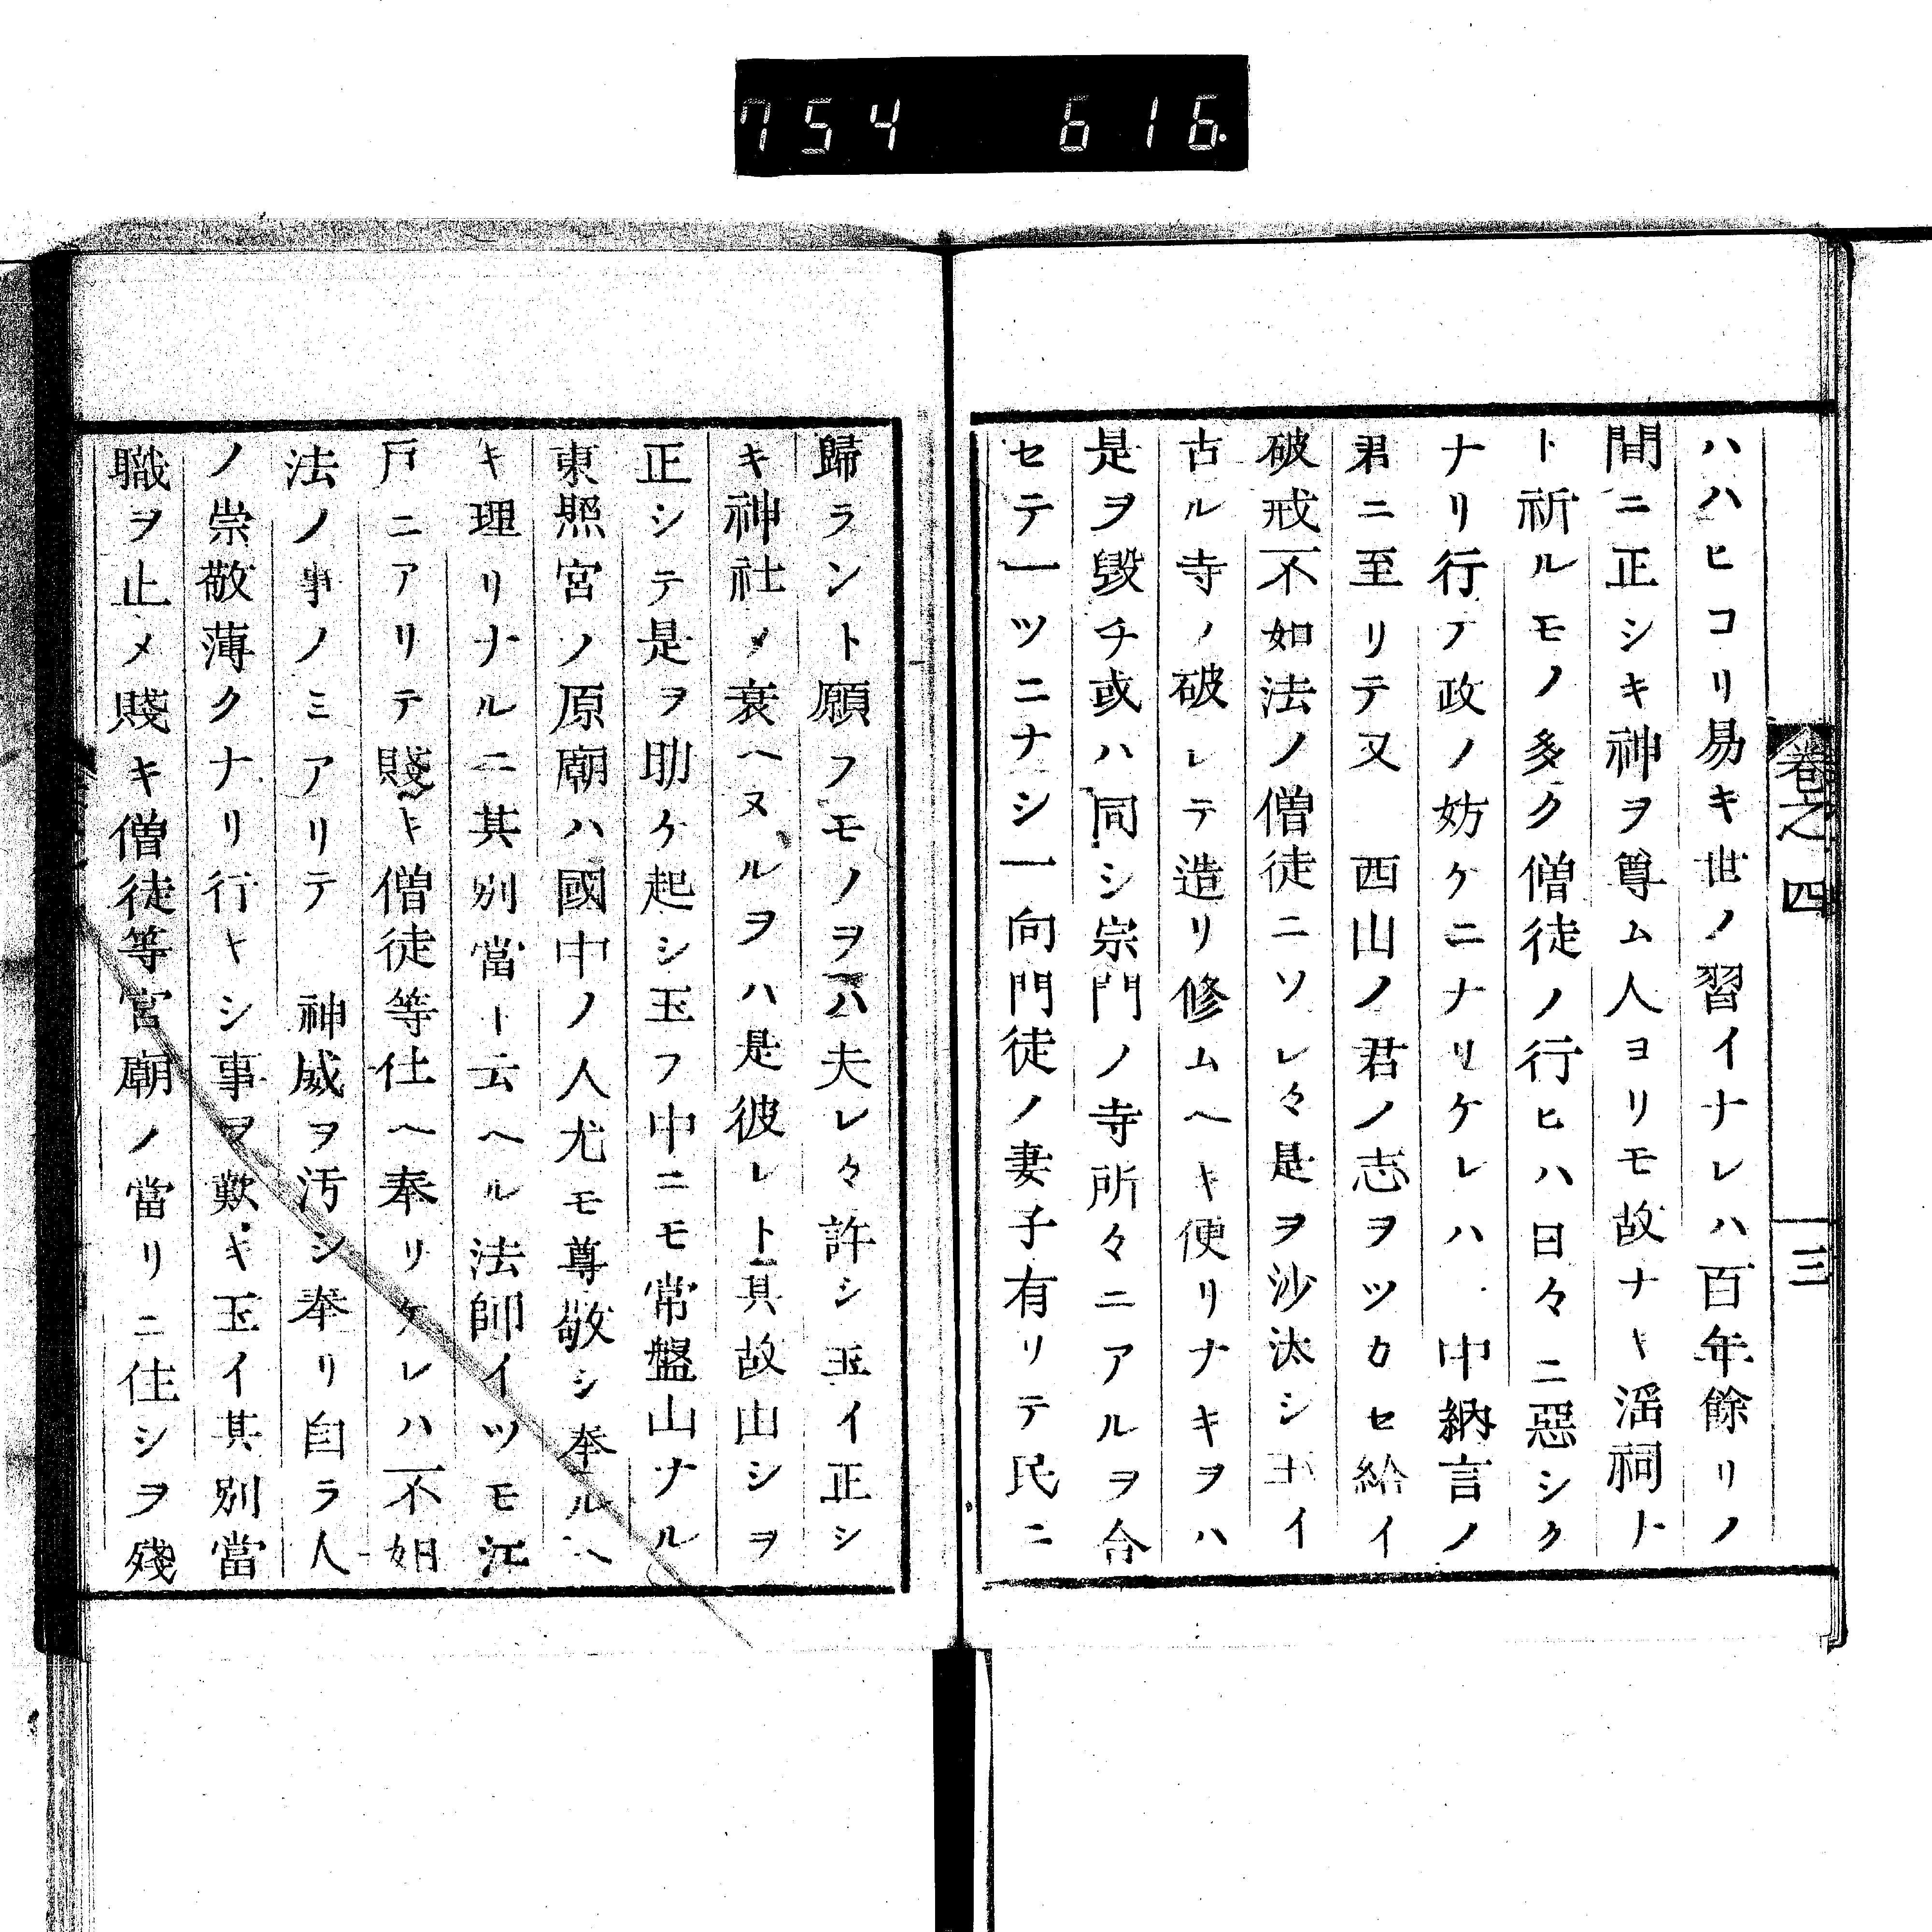 754 616.
卷之四 三
ハハヒコリ易キ世ノ習イナレハ百年餘リノ
間ニ正シキ神ヲ尊ム人ヨリモ故ナキ淫祠ト
ト祈ルモノ多ク僧徒ノ行ヒハ日々ニ惡シク
ナリ行テ政ノ妨ケニナリケレハ 中納言ノ
君ニ至リテ又 西山ノ君ノ志ヲツカセ給イ
破戒不如法ノ僧徒ニソレ々是ヲ沙汰シ玉イ
古ル寺ノ破レテ造リ修ムヘキ便リナキヲハ
是ヲ毀チ或ハ同シ宗門ノ寺所々ニアルヲ合
セテ一ツニナシ一向門徒ノ妻子有リテ民ニ
歸ラント願フモノヲハ夫レ々許シ玉イ正シ
キ神社ノ衰ヘヌルヲハ是彼レト其故由シヲ
正シテ是ヲ助ケ起シ玉フ中ニモ常盤山ナル
東照宮ノ原廟ハ國中ノ人尤モ尊敬シ奉ルヘ
キ理リナルニ其別當ト云ヘル法師イツモ江
戸ニアリテ賤キ僧徒等仕ヘ奉リケレハ不如
法ノ事ノミアリテ 神威ヲ汚シ奉リ自ラ人
ノ崇敬薄クナリ行キシ事ヲ歎キ玉イ其別當
職ヲ止メ賤キ僧徒等宮廟ノ當リニ住シヲ殘